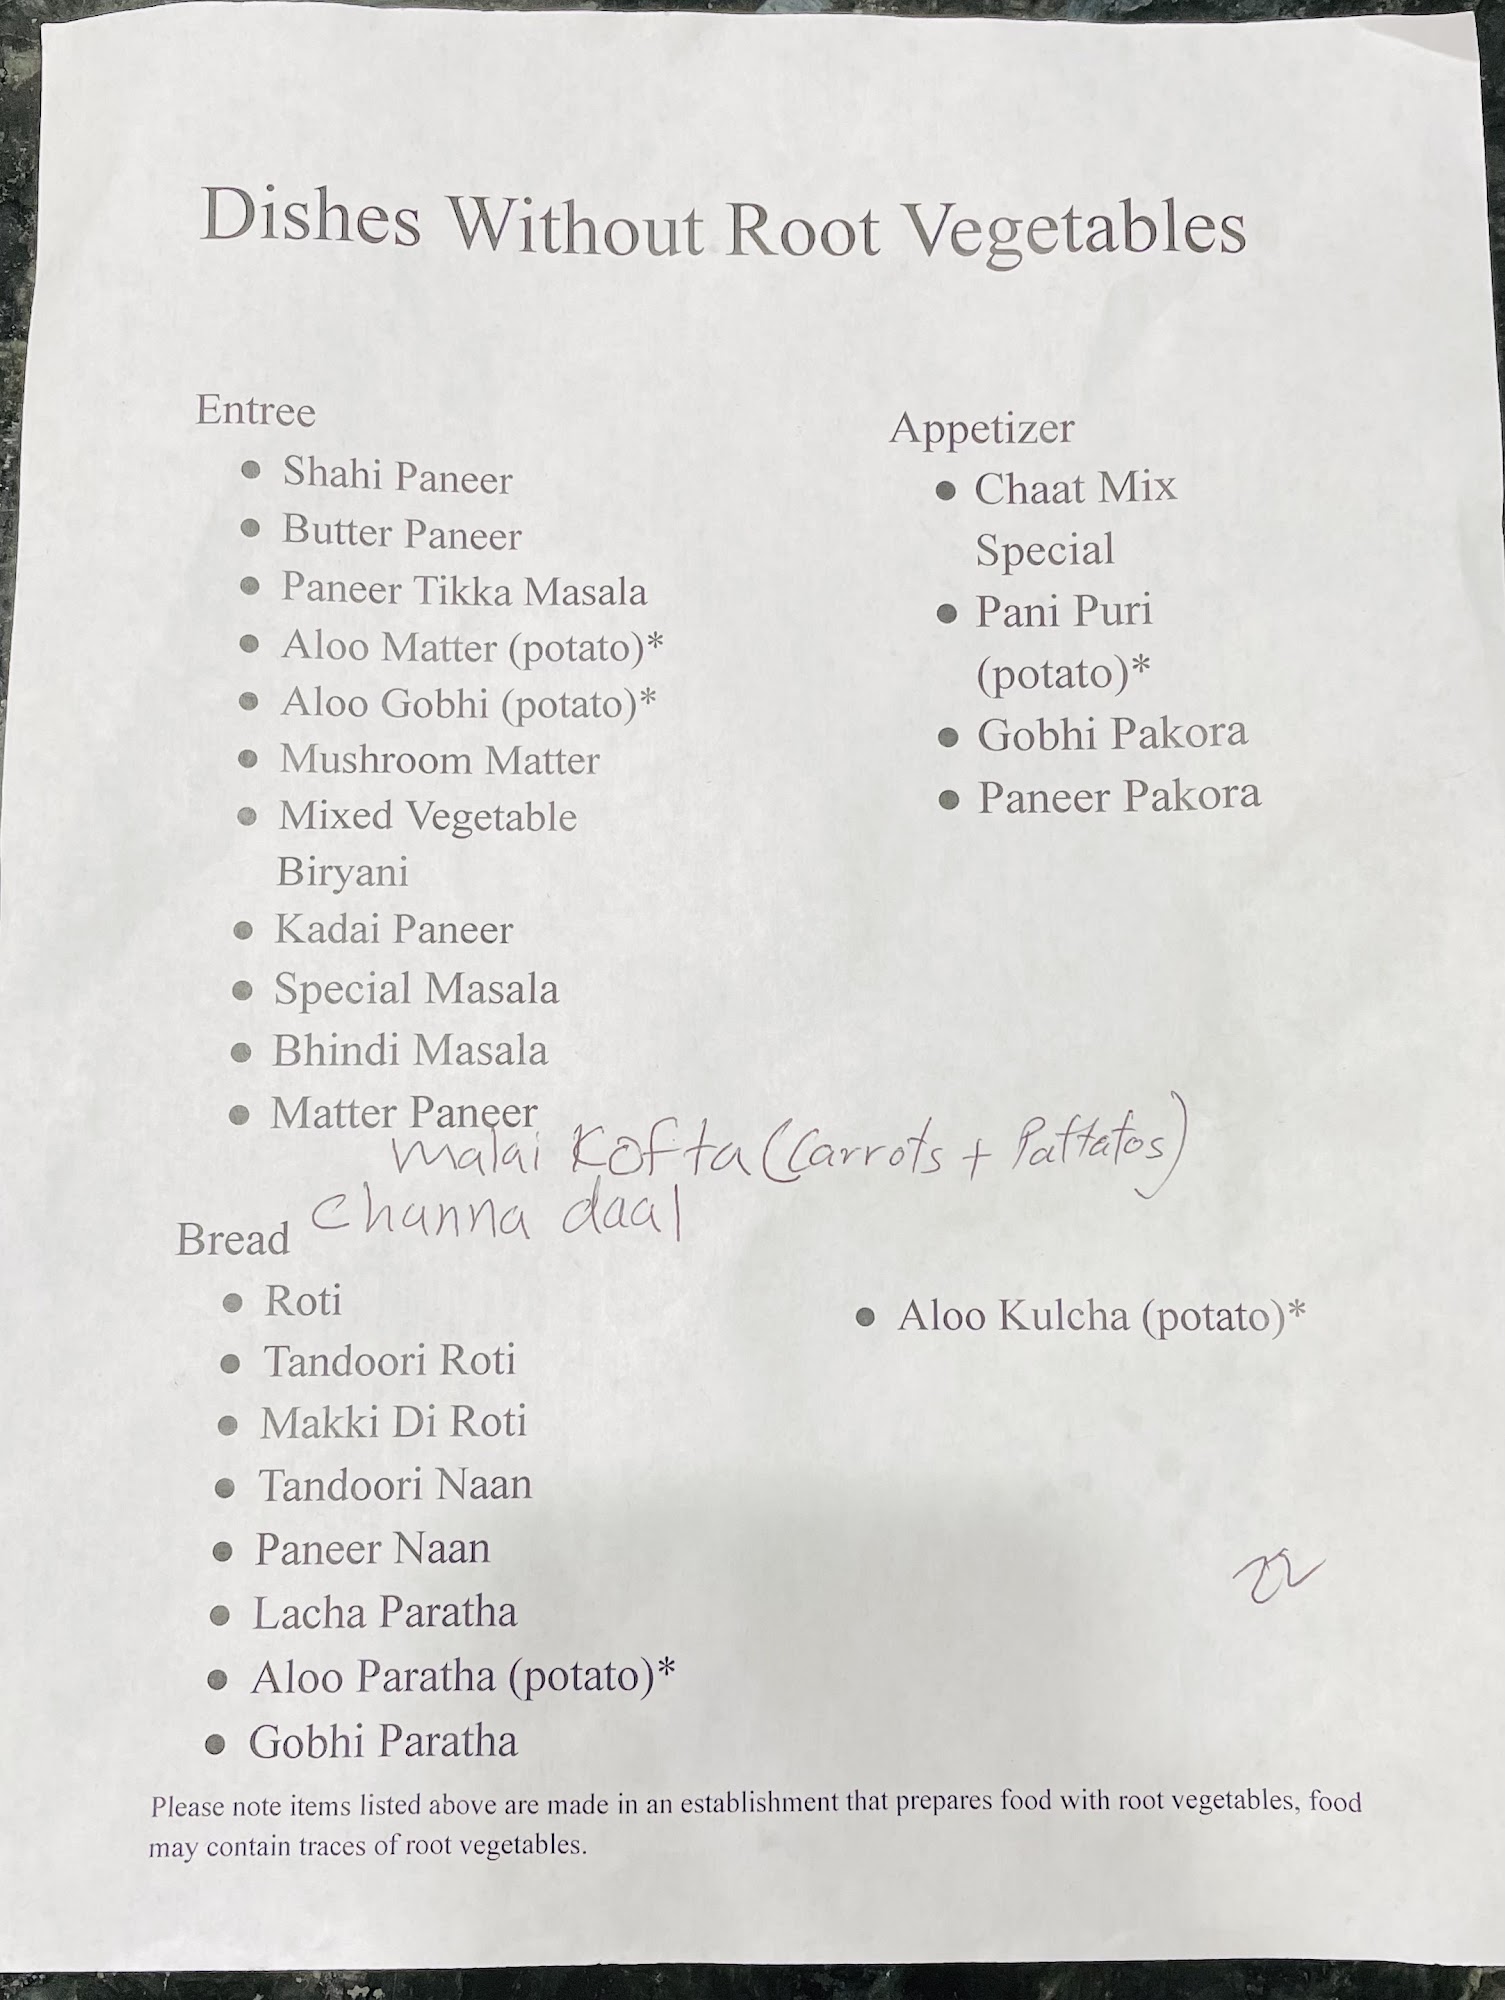 Dishes Without Root Vegetables
Entree
● Shahi Paneer
● Butter Paneer
● Paneer Tikka Masala
● Aloo Matter (potato)*
● Aloo Gobhi (potato)*
● Mushroom Matter
● Mixed Vegetable
Biryani
● Kadai Paneer
● Special Masala
● Bhindi Masala
● Matter Paneer
malai Kofta (Carrots + Pattatos)
Channa daal
Appetizer
● Chaat Mix
Special
● Pani Puri
(potato)*
● Gobhi Pakora
● Paneer Pakora
Bread
● Roti
● Tandoori Roti
● Makki Di Roti
● Tandoori Naan
● Paneer Naan
● Lacha Paratha
● Aloo Paratha (potato)*
● Gobhi Paratha
● Aloo Kulcha (potato)*
Please note items listed above are made in an establishment that prepares food with root vegetables, food
may contain traces of root vegetables.